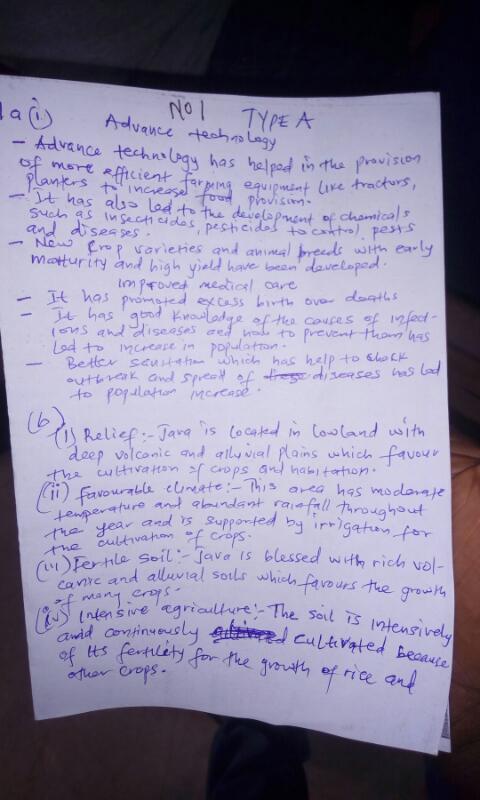 NO1 TYPE A
1a (i) Advance technology
- Advance technology has helped in the provision
of more efficient farming equipment like tractors,
planters to increase food provision.
- It has also led to the development of chemicals
such as insecticides, pesticides to control pests
and diseases.
- New crop varieties and animal breeds with early
matturity and high yield have been developed.
improved medical care
- It has promoted excess birth over deaths
- It has good knowledge of the causes of infect-
ions and diseases and how to prevent them has
led to increase in population.
- Better sanitation which has help to
outbreak and spread of diseases has led
to population increase.
(b)
(i) Relief:- Java is located in lowland with
deep volcanic and alluvial plains which favour
the cultivation of crops and habitation.
(ii) Favourable climate:- This area has moderate
temperature and abundant rainfall throughout
the year and is supported by irrigation for
the cultivation of crops.
(iii) Fertile soil:- Java is blessed with rich vol-
canic and alluvial soils which favours the growth
of many crops.
(iv) Intensive agriculture:- The soil is intensively
and continuously cultivated because
of its fertility for the growth of rice and
other crops.